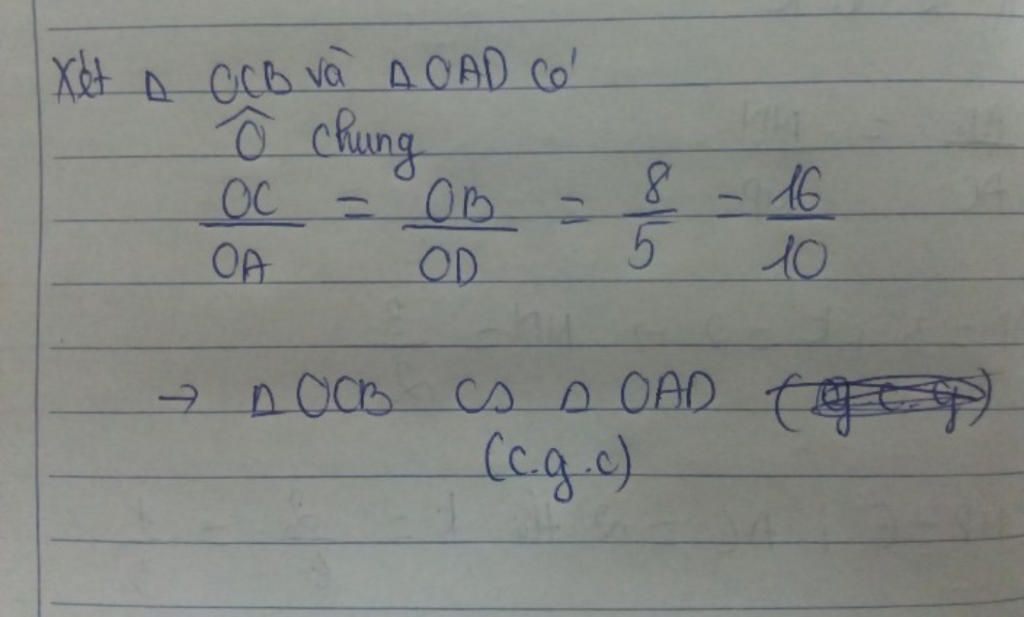 Xét Δ OCB và Δ OAD có
Ô chung
OC/OA = OB/OD = 8/5 = 16/10
→ Δ OCB ∽ Δ OAD (g.c.g)
(c.g.c)